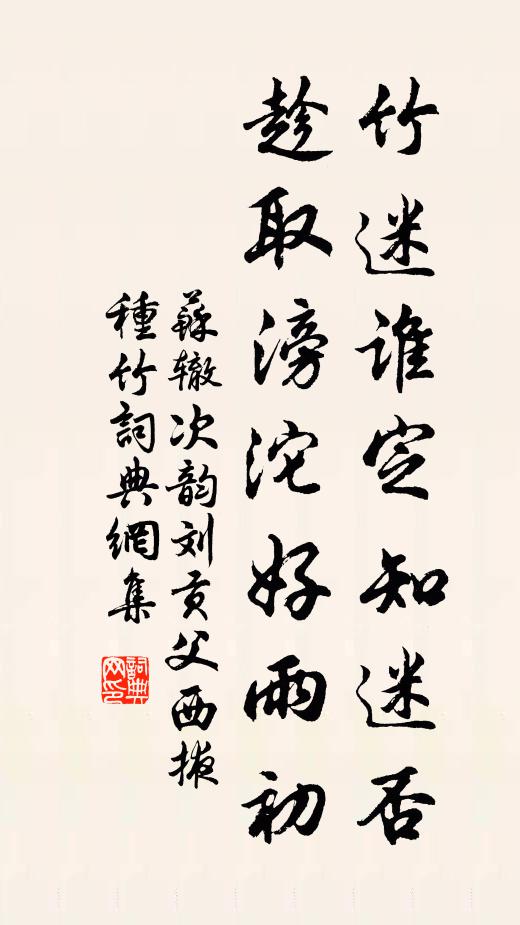 竹迷谁定知迷否
趁取滂沱好雨初
蘇辙次韵刘贡父西掖
種竹詞典網集
詞典网印